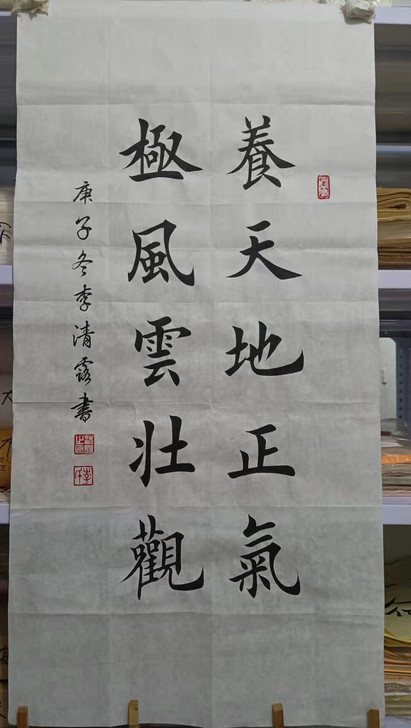 養天地正氣
極風雲壯觀
庚子冬李清露書